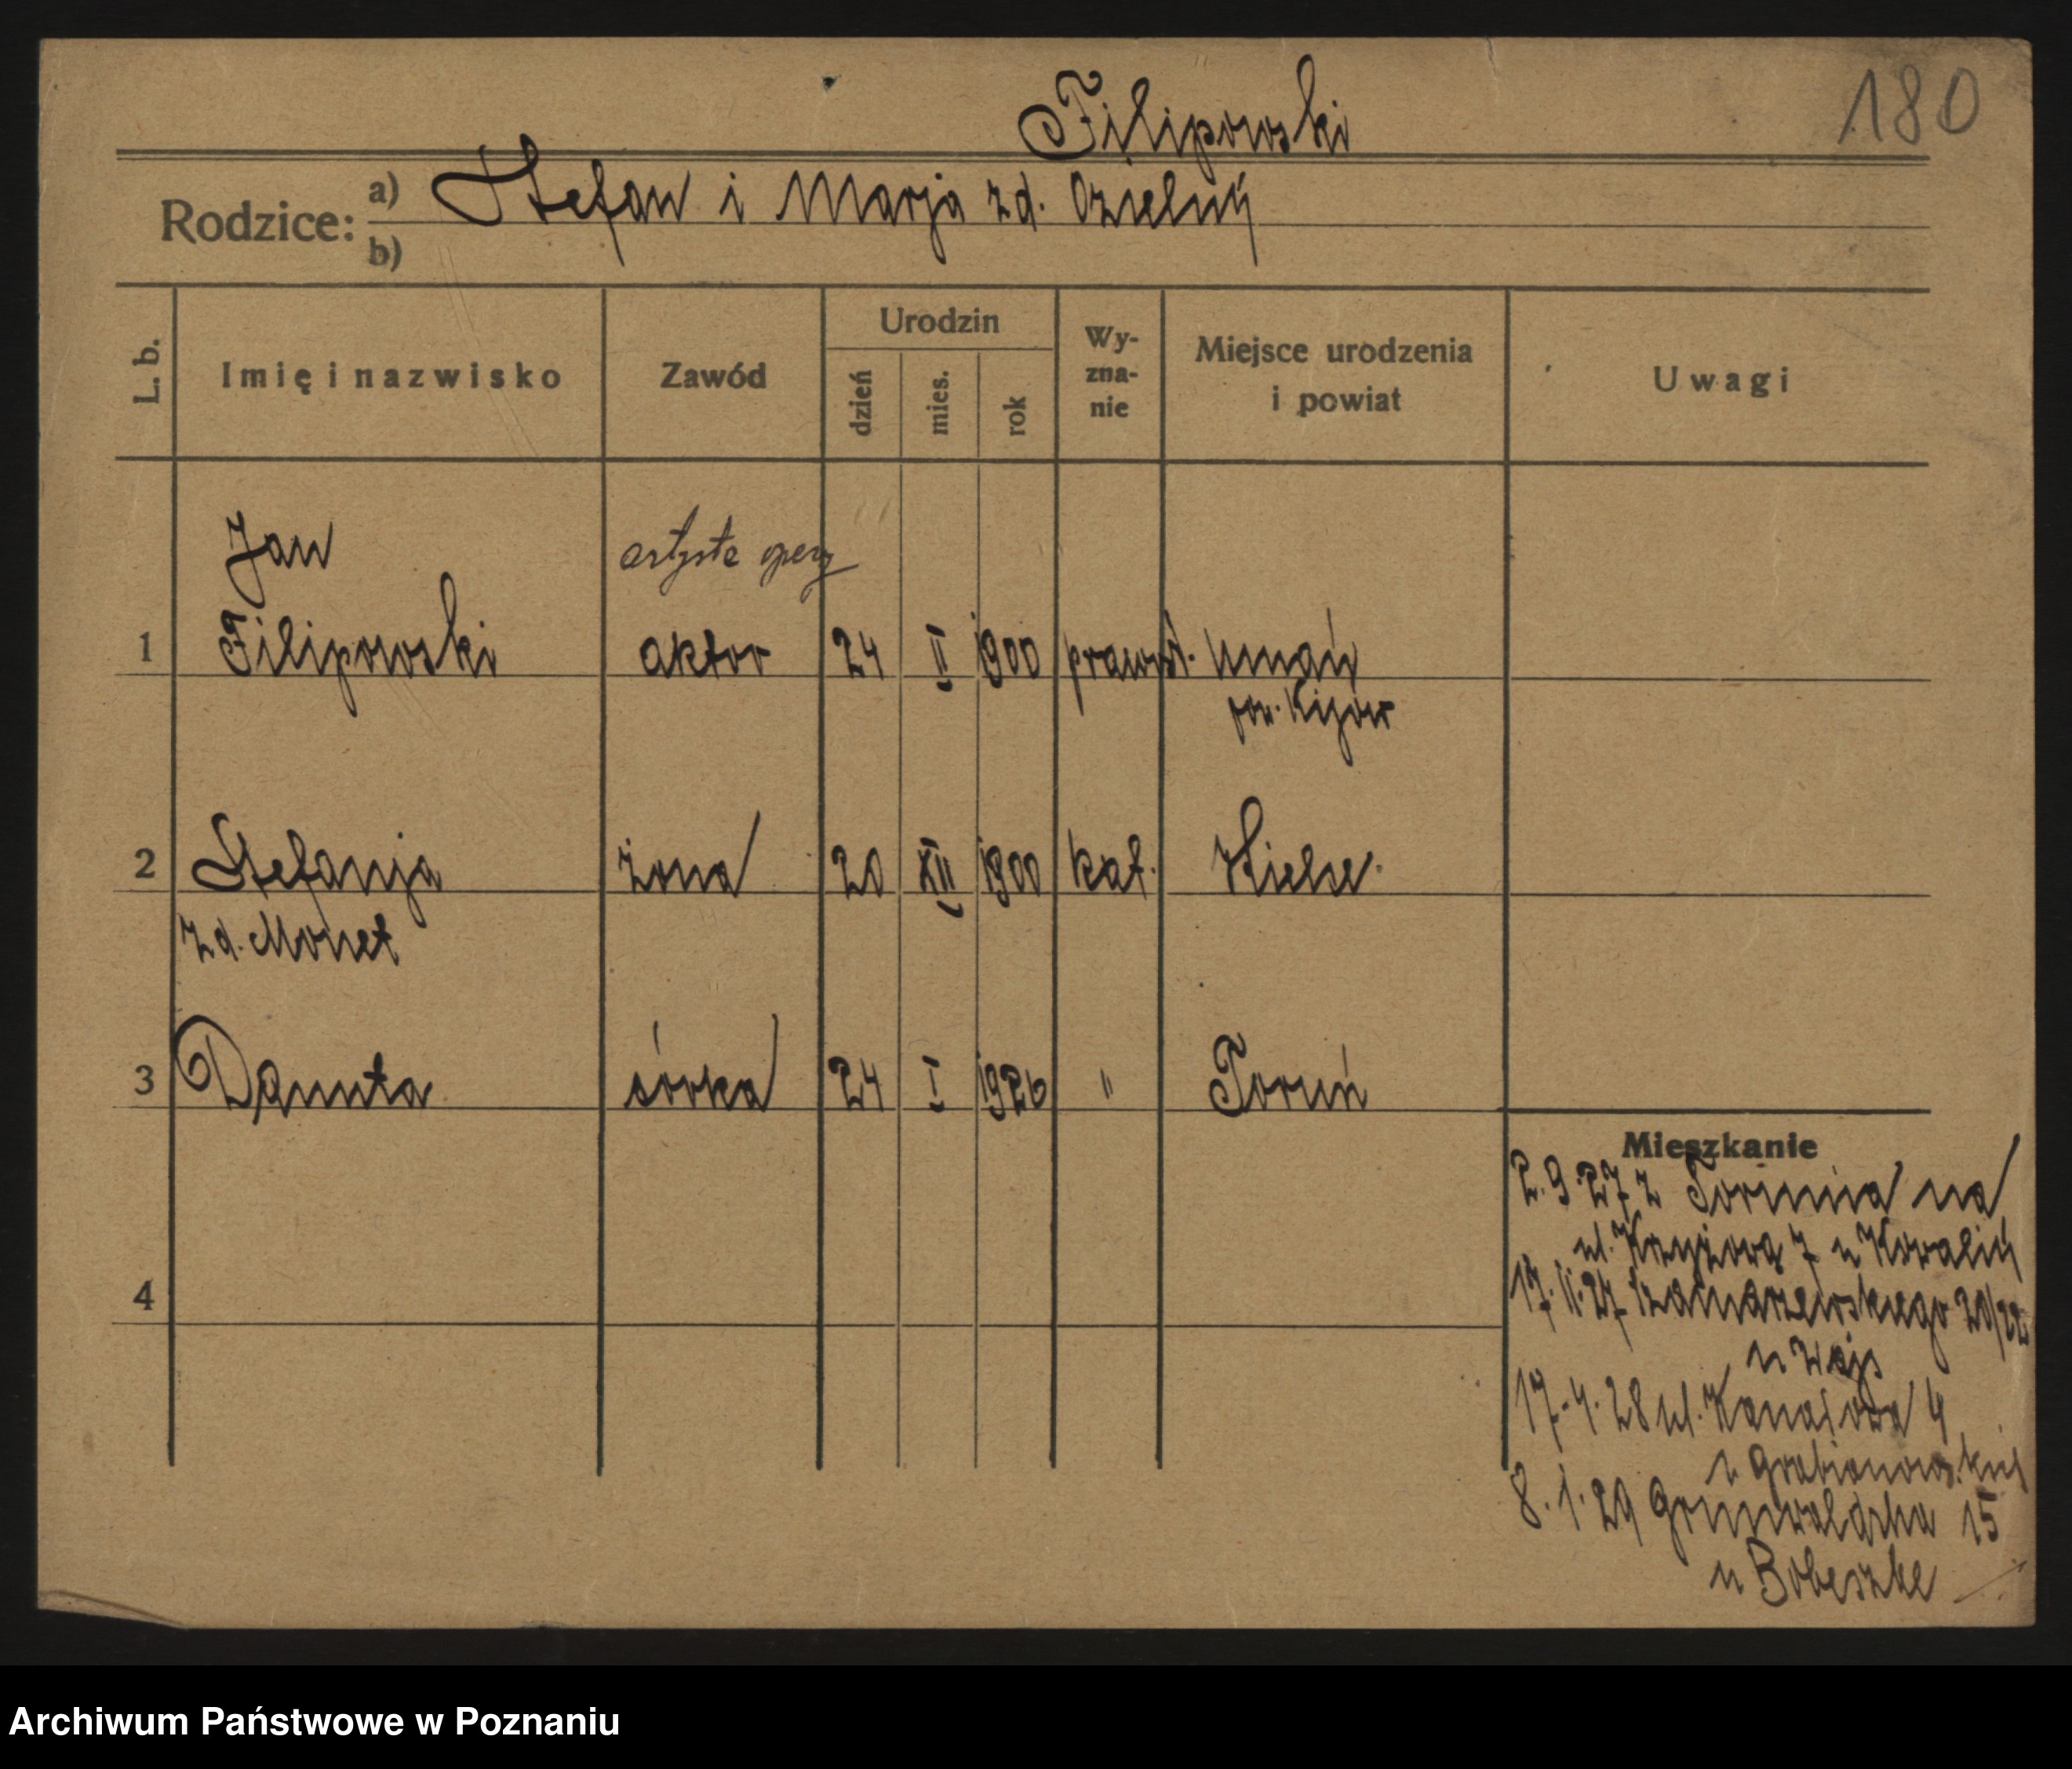 Filipowski
180
Rodzice: a) Stefan i Marja zd. Ozielnij
b)
L. b. Imię i nazwisko Zawód Urodzin dzień mies. rok Wy-zna-nie Miejsce urodzenia i powiat Uwagi
Jan artysta opery
1 Filipowski aktor 24 II 1900 prawosł. Umań
pow. Kijów
2 Stefanja żona 20 XII 1900 kat. Kielce
zd. Monet
3 Danuta córka 24 I 1926 " Toruń
Mieszkanie
2.9.27 z Torunia na
ul. Krzyżową 7 u Kowalin
4
17.11.27 Szamarzewskiego 20/22
u Wojs
17-4.28 ul. Kanałowa 4
u Grabianowskiej
8.1.29 Grunwaldzka 15
u Bobeszke
Archiwum Państwowe w Poznaniu